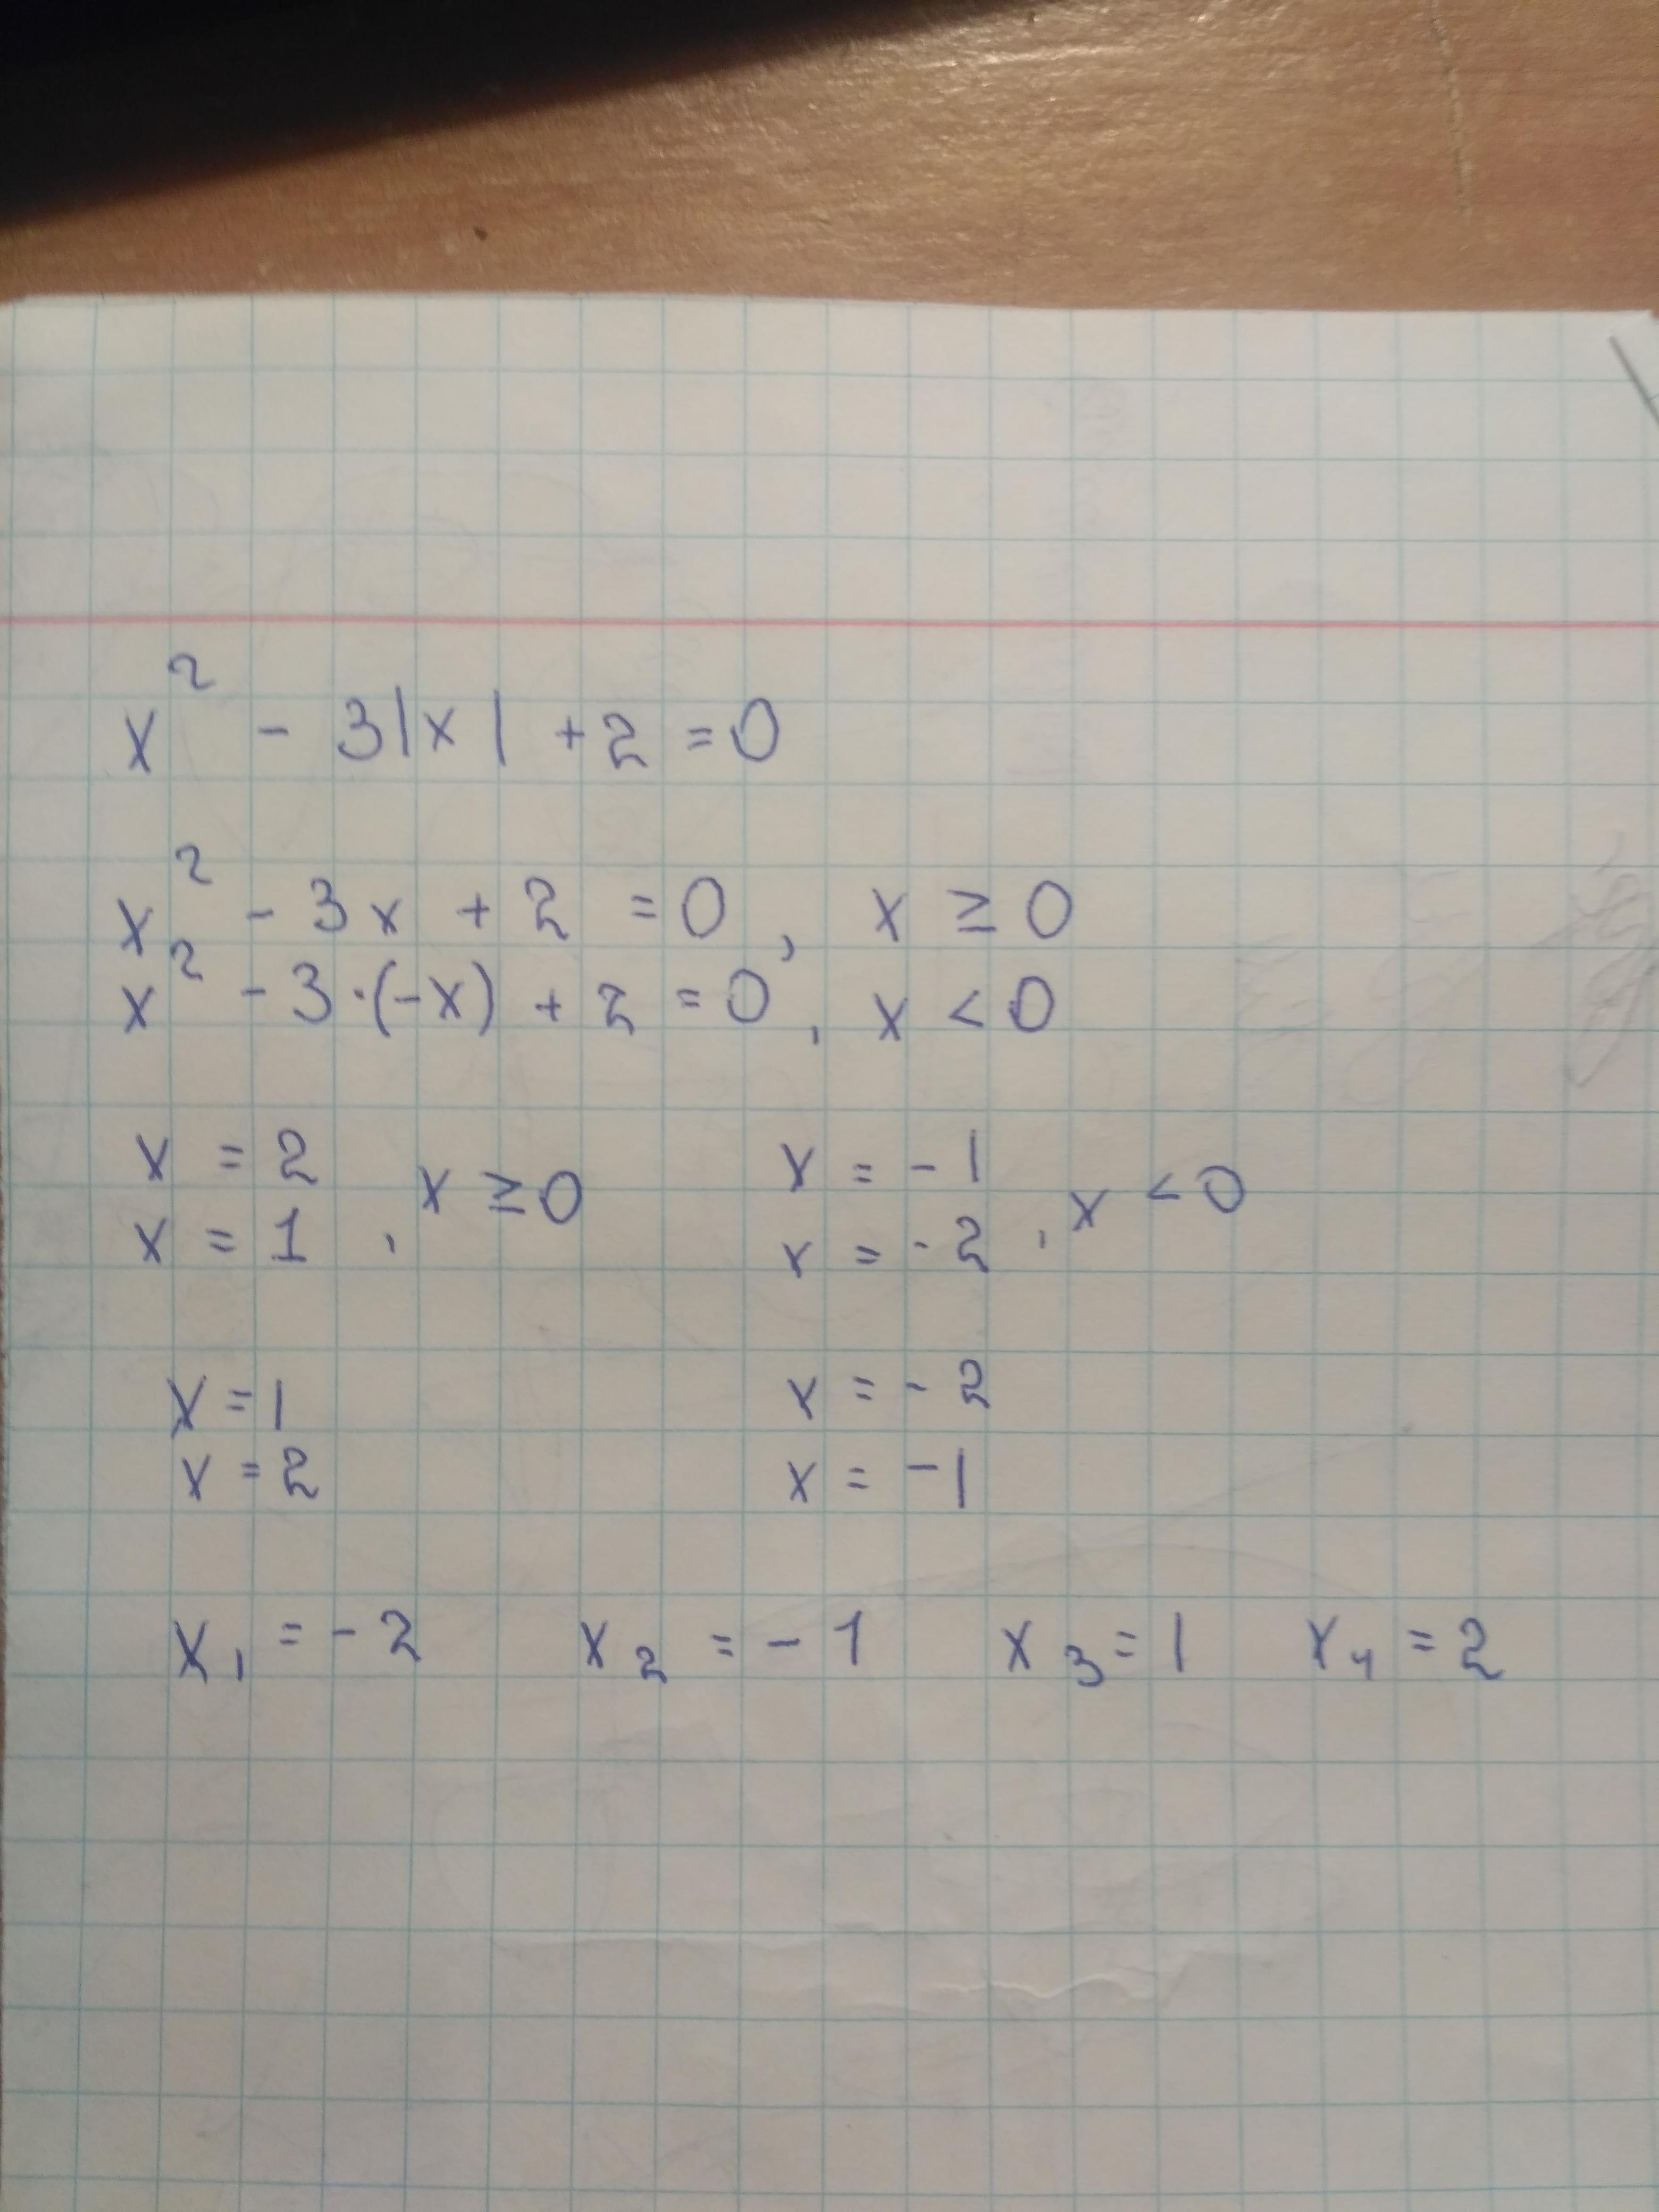 x² - 3|x| + 2 = 0
x² - 3x + 2 = 0, x ≥ 0
x² - 3·(-x) + 2 = 0, x < 0
x = 2 x = -1
x = 1 , x ≥ 0 x = -2 , x < 0
x = 1 x = -2
x = 2 x = -1
x₁ = -2 x₂ = -1 x₃ = 1 x₄ = 2